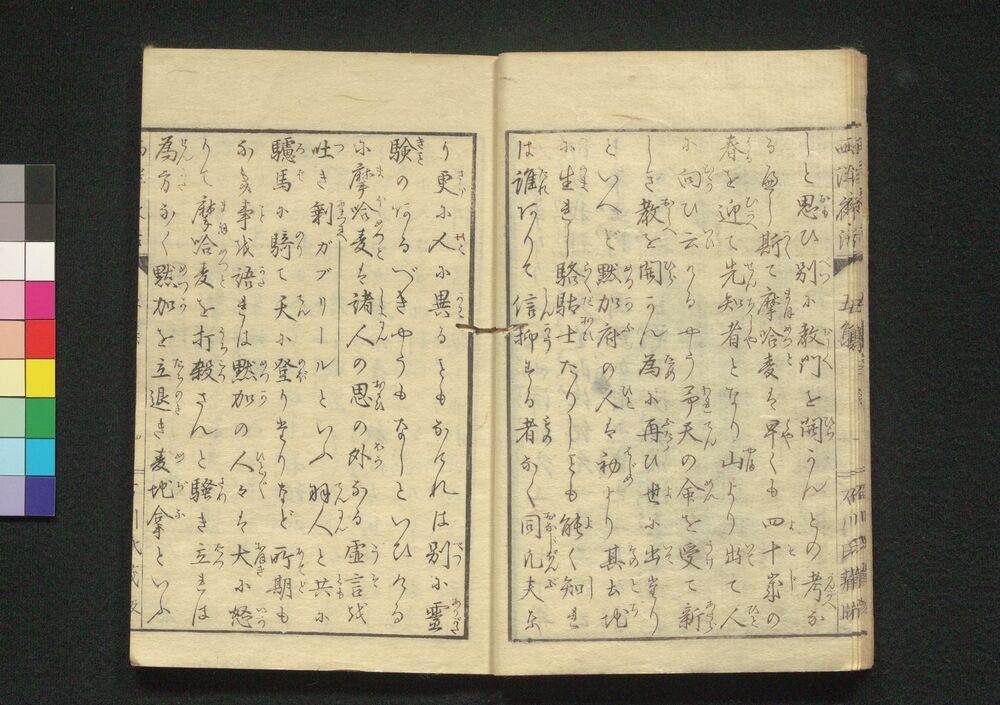 しと思ひ別に教門を開うんとの考な
るべし斯て摩哈麦は早くも四十歳の
春を迎て先知者となり山より出て人
に向ひ云けるやう予天の命を受て新
しき教を開かん為に再ひ世に出たり
といへど黙加府の人は初より其土地
に生れし駱駘士たりしとも能く知れ
は誰ありて信仰する者なく同凡夫な
り更に人に異るともなければ別に霊
験のあるべきやうもなしといひける
に摩哈麦は諸人の思の外なる虚言を
吐き剰ガブリールといふ羽人と共に
驢馬に騎て天に登りたりなど所期も
なき事を語れは黙加の人々は大に怒
りて摩哈麦を打殺さんと騒き立れは
為方なく黙加を立退き麦地拿といふ